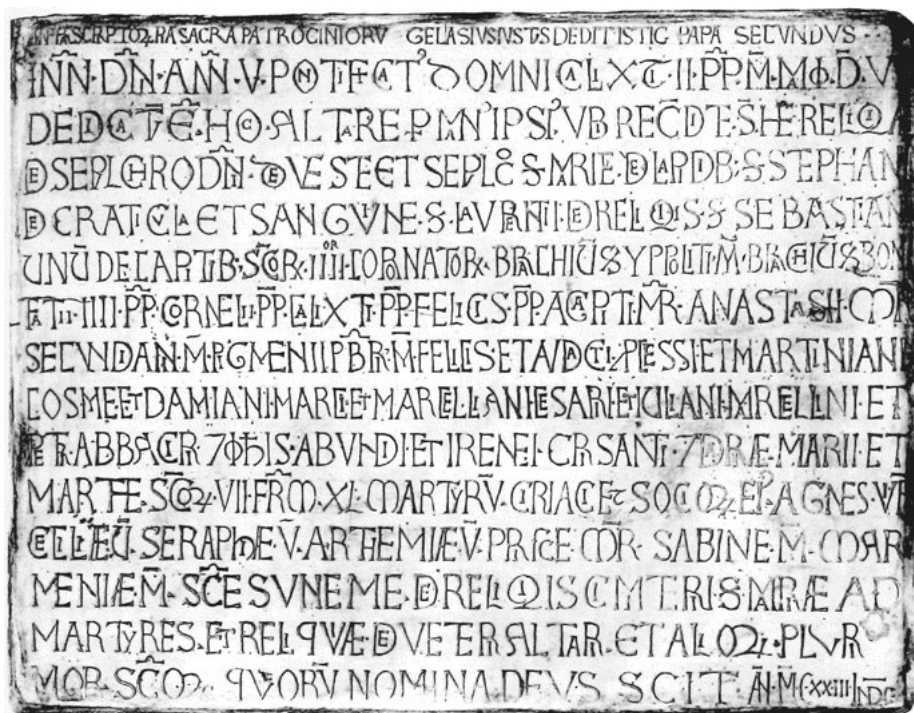 INFRASCRIPTOꝜ RA SACRA PATROCINIORV GELASIVS IVSTVS DEDIT ISTIC PAPA SECVNDVS
IN N̄ DN̄I ANN V PONTIFICAT DOMNI CALIXTI II P̄P M̄ D̄ V
DEDICATV̄ E HOC ALTARE P MAN IPSI VB RECD̄T S HE RELIQ
DE SEPVLCHRO DN̄I DE VESTE ET SEPLC S MARIE DE LAPIDB S STEPHAN
DE CRATICVLA ET SANGVINE S LAVRENTII DE RELIQIS S SEBASTIAN
UNŪ DE CAPITIB SCOR IIII CORONATOR BRACHIŪ S YPPOLITI M̄ BRACHIŪ S BON
FATII IIII P̄P CORNELII P̄P CALIXTI P̄P FELICIS P̄P AGAPITI M̄R ANASTASII M
SECVNDIANI M̄ PIGMENII PBR M̄ FELICIS ET AVDACTI PCESSI ET MARTINIANI
COSME ET DAMIANI MARCI ET MARCELLIANI CESARII ET IULIANI MARCELLINI ET
PETRI ABBACIRI 7 IOHIS ABVNDI ET IRENEI CRISANTI 7 DARIÆ MARII ET
MARTHE SCOꝜ VII FRM XL MARTYRV̄ CIRIACI ET SOCIOꝜ EI AGNES V
CECILIE V̄ SERAPHIE V̄ ARTHEMIÆ V̄ PRISCE MR SABINE M̄
MENIÆ M̄ SCE SVNEME DE RELIQIS CIMITERII S MARIÆ AD
MARTYRES ET RELIQVÆ DE VETERI ALTARI ET ALIOꝜ PLVR
IMOR SCOꝜ QVORV NOMINA DEVS SCIT AN M CXXIII INDC